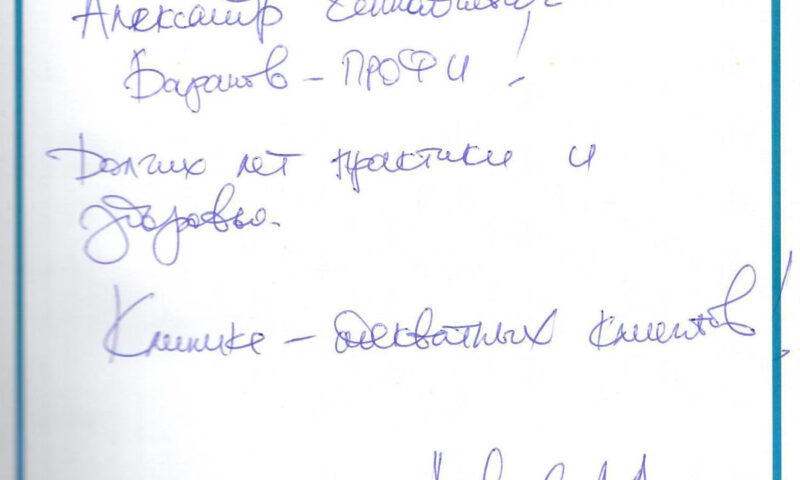 Александр Геннадьевич
Баранов – ПРОФИ!
Долгих лет практики и
здоровья.
Клинике – адекватных клиентов!